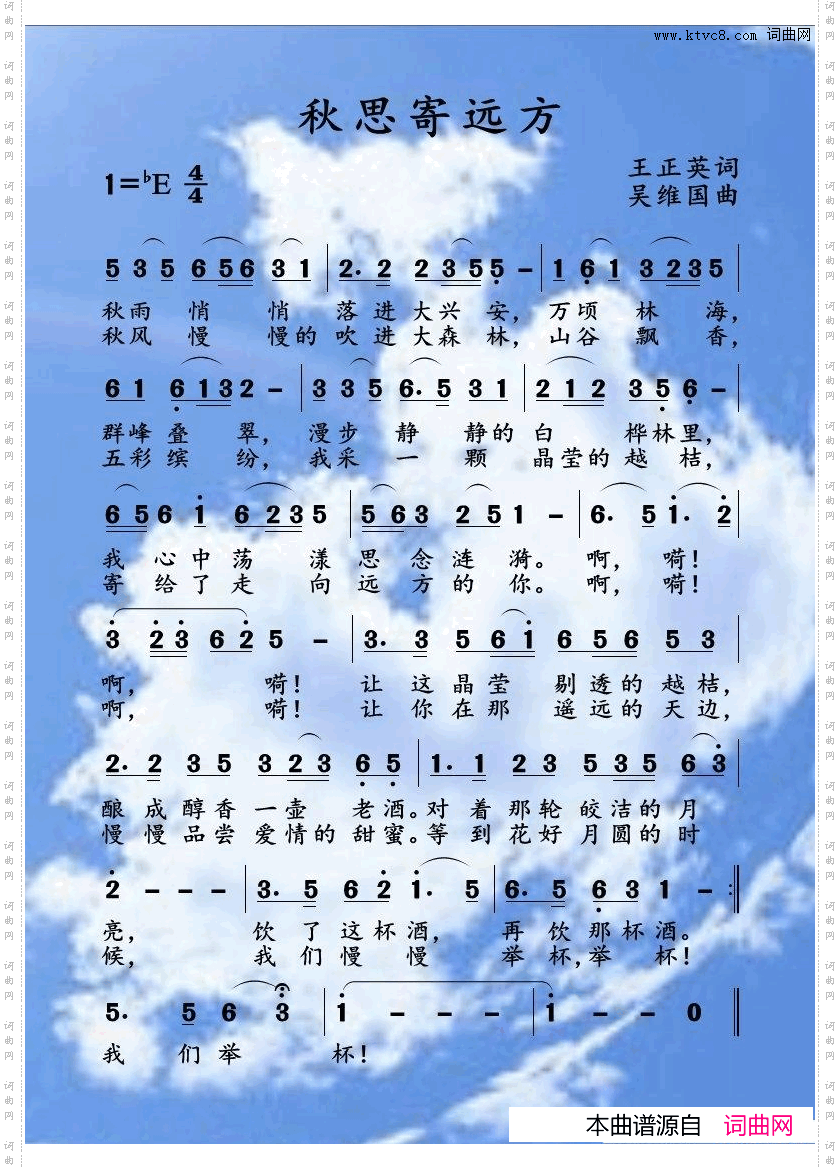 www.ktvc8.com 词曲网
秋思寄远方
1=♭E 4/4
王正英词
吴维国曲
5 3 5 6 5 6 3 1 | 2. 2 2 3 5 5 - | 1 6 1 3 2 3 5 |
秋雨 悄 悄 落进大兴安,万顷林海,
秋风 慢 慢的吹进大森林,山谷飘香,
6 1 6 1 3 2 - | 3 3 5 6. 5 3 1 | 2 1 2 3 5 6 - |
群峰叠 翠,漫步静 静的白 桦林里,
五彩缤 纷,我采一 颗 晶莹的越桔,
6 5 6 1 6 2 3 5 | 5 6 3 2 5 1 - | 6. 5 1. 2 |
我 心中荡 漾思念涟漪。啊, 嗬!
寄 给了走 向远方的你。啊, 嗬!
3 2 3 6 2 5 - | 3. 3 5 6 1 6 5 6 5 3 |
啊, 嗬! 让这晶莹 剔透的越桔,
啊, 嗬! 让你在那 遥远的天边,
2. 2 3 5 3 2 3 6 5 | 1. 1 2 3 5 3 5 6 3 |
酿成醇香一壶 老酒。对着那轮皎洁的月
慢慢品尝爱情的甜蜜。等到花好月圆的时
2 - - - | 3. 5 6 2 1. 5 | 6. 5 6 3 1 - :‖
亮, 饮了这杯酒, 再饮那杯酒。
候, 我们慢慢 举杯,举杯!
5. 5 6 3 | 1 - - - | 1 - - 0 ‖
我 们举 杯!
本曲谱源自 词曲网